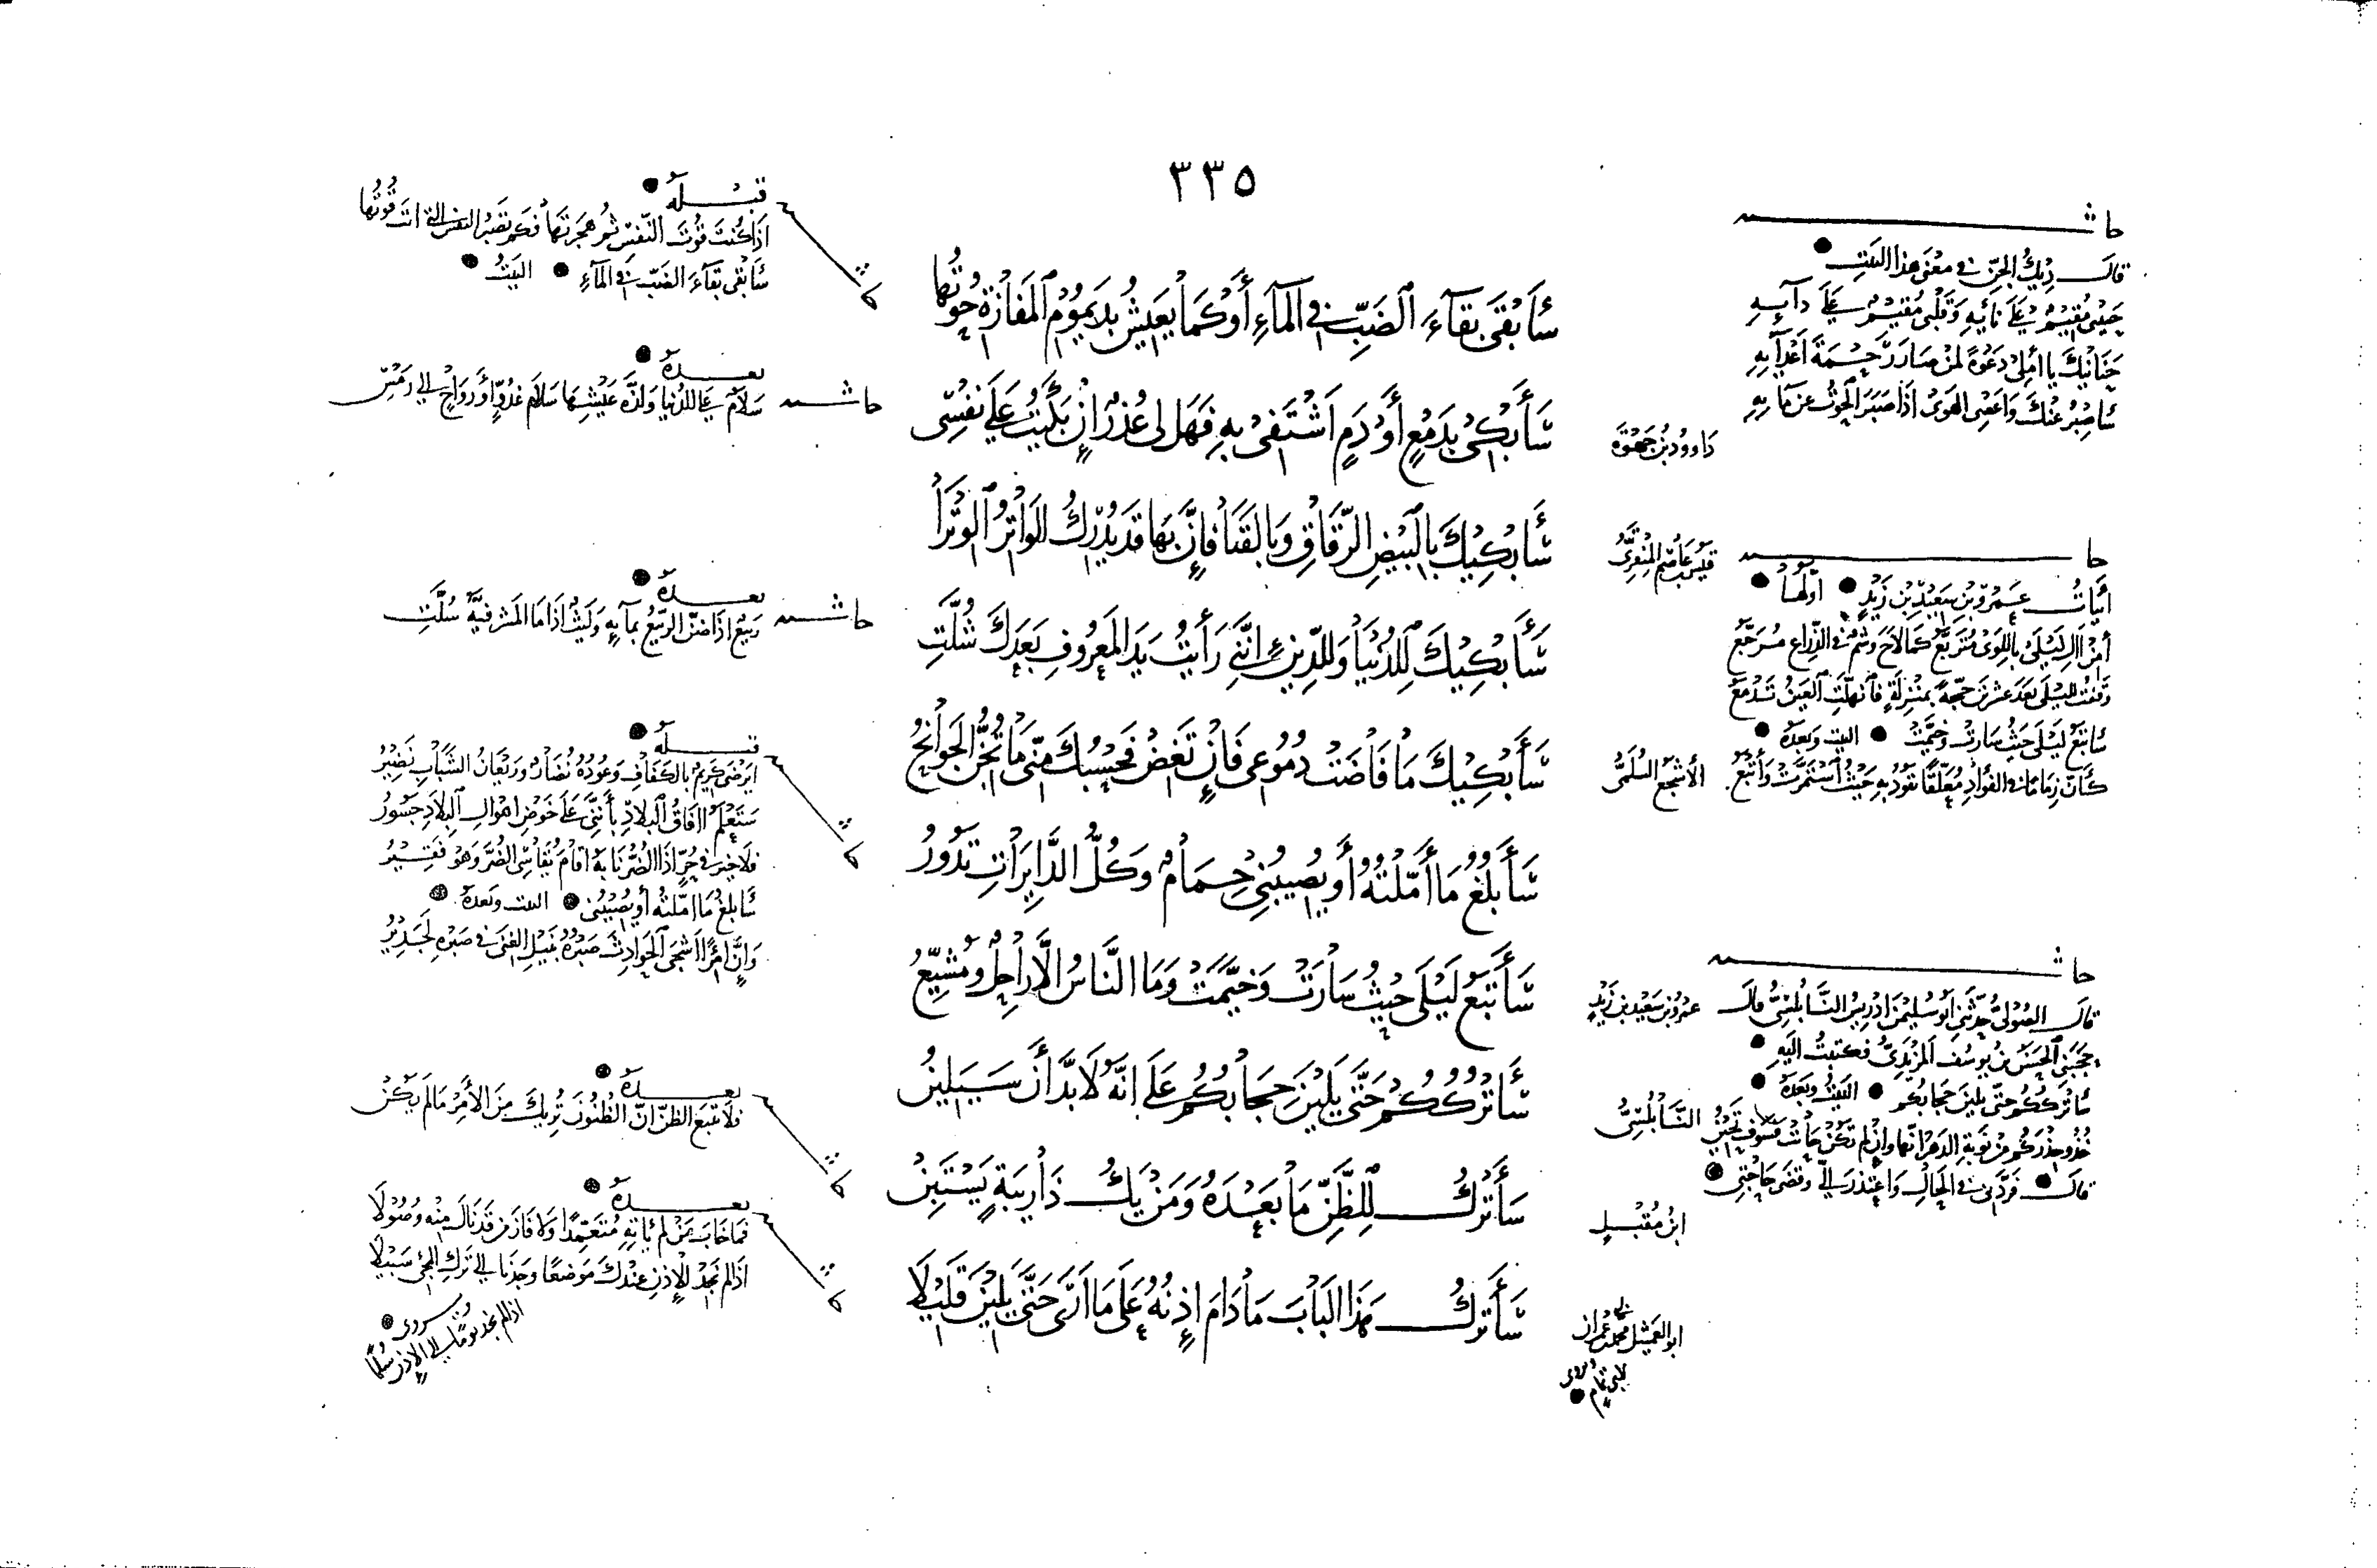 ٣٣٥
سَأَبْقَى بَقَآءَ الضَبِّ فِى المَآءِ أَوْ كَمَا يَعِيشُ بِدَيْمُوْمِ المَفَازَةِ حُوْتُهَا
سَأَبْكِى بِدَمْعٍ أَوْ دَمٍ اَشْتَفِى بِهِ فَهَل لِى عُذْرٌ اِنْ بَكَيْتُ عَلَى نَفْسِى
سَأَبْكِيْكَ بِالبَيْضِ الرِّقَاقِ وَبِالقَنَا فَإِنَّ بِهَا قَدْ يُدْرِكُ الوَاتِرُ الوِتْرَا
سَأَبْكِيْكَ لِلدُنْيَا وَلِلدِّيْنِ إِنَّنِى رَأَيْتُ يَدَ المَعْرُوفِ بَعْدَكَ شُلَّتِ
سَأَبْكِيْكَ مَا فَاضَتْ دُمُوْعِى فَاِنْ تَغِضْ فَحَسْبُكَ مِنّى مَا تُجِنُّ الجَوَانِحُ
سَأَبْلُغُ مَا أَمَّلْتُهُ أَوْ يُصِيبُنِى حِمَامٌ وَكُلُّ الدَّايِرَاتِ تَدُوْرُ
سَأَتْبَعُ لَيْلَى حَيْثُ سَارَتْ وَخَيَّمَتْ وَمَا النَّاسُ اِلَّا رَاحِلٌ وَمُشَيِّعُ
سَأَتْرُكُكُمْ حَتَّى يَلِيْنَ حِجَابُكُمْ عَلَى اِنَّهُ لَابُدَّ أَنْ سَيَلِيْنُ
سَأَتْرُكُ لِلظَنِّ مَا بَعْدَهُ وَمَنْ يَكُ ذَا رِيبَةٍ يَسْتَبِنْ
سَأَتْرُكُ هَذَا البَابَ مَا دَامَ إِذْنُهُ عَلَى مَا اَرَى حَتَّى يَلِيْنَ قَلِيْلَا
حاش
قال دِيْكُ الجِنّ فى معْنَى هذا البَيتِ
حَبِيْبِى مُقِيْمٌ عَلَى نَأيِهِ وَقَلْبِى مُقِيْمٌ عَلَى دآيِهِ
حَنَانَيْكَ يا اَمَلِى دَعْوَةً لِمَنْ صَارَ رَحْمَةَ اَعْدآيِهِ
سَأَصْبِرُ عَنْكَ وَاَعْصِى الهَوَى اِذَا صَبَرَ الحُوْتُ عَنْ مَآيِهِ
دَاوودُ بنُ جَهْوَةَ
قيسُ بنُ عاصِم المِنْقَرِىُّ
حا
أبْيَاتُ عَمرو بن سَعِيْد بنِ زَيْدٍ اَوّلُهَا
أَمِنْ اَلِ لَيْلَى بِاللِّوَى مُتَرَبَّعُ كَمَا لَاحَ وَشْمٌ فِى الذِّراعِ مُرَجَّعُ
وَقَفْتُ لِلَيْلَى بَعْدَ عِشْرِيْنَ حِجَّةً بِمَنْزِلَةٍ فَانْهَلَّتِ العَيْنُ تَدْمَعُ
سَأَتبَعُ لَيْلَى حَيْثُ سَارَتْ وَخَيَّمَتْ البيت وبعدَهُ
كَأَنَّ زِمَامًا فِى الفُؤَادِ مُعَلَّقًا تَقُوْدُ بِهِ حَيْثُ اسْتَمَرَّتْ وَأَتْبَعُ
الأَشجَعُ السُلَمِىُّ
حاش
قال الصُوْلىُّ حَدَّثَنِى أبُو سُلَيْمَنَ اِدْرِيسُ النَّابُلُسِىُّ قال
حَجَبَنِى الحَسَنُ بنُ يُوسُفَ اليَزِيْدِىُّ فَكَتَبْتُ اِلَيْهِ
سَأَتْرُكُكُمْ حَتَّى يَلِيْنَ حِجَابُكُمْ البَيْتُ وَبَعْدَهُ
خُذُوا حِذْرَكُمْ مِنْ نَوْبَةِ الدَهْرِ اِنَّهَا وَاِنْ لَم تَكُنْ حَانَتْ فَسَوْفَ تَحِيْنُ
قال فَرَدَّنِى فِى الحَالِ وَاعْتَذَرَ اِلَىَّ وَقَضَى حَاجَتِى
عَمْرُو بنُ سَعِيْدِ بنِ زَيْدٍ
النَّابُلُسِىُّ
ابنُ مُقْبِلٍ
ابو العَمَيْثَل
ويروى لابى تمام
قَبْلَهُ
اِذَا كُنتَ قُوْتَ النَّفْسِ ثُمَّ هَجَرْتَهَا فَكَمْ تَصْبِرُ النفسُ التى انتَ قُوْتُهَا
سَأَبْقَى بَقَآءَ الضَبِّ فِى المَآءِ البَيْتُ
حاش
بعدَهُ
سَلَامٌ عَلَى الدُنْيَا وَلَذَّةِ عَيْشِهَا سَلَامَ غُدُوٍّ أَوْ رَوَاحٍ اِلى رَمْسِ
حاش
بعدَهُ
رَبِيْعٌ اِذَا ضَنَّ الرَبِيْعُ بِمَآيِهِ وَلَيْثٌ اِذَا مَا المَشْرَفِيَّةُ سُلَّتِ
حاش
قبلَهُ
أيَرْضَى كَرِيْمٌ بِالكَفَافِ وَعُوْدُهُ نُضَارٌ وَرَيْعَانُ الشَبَابِ نَضِيْرُ
سَتَعْلَمُ اَفَاقُ البِلَادِ بِأَنَّنِى عَلَى خَوْضِ اَهْوَالِ البِلَادِ جَسُوْرُ
فَلَا خَيْرَ فِى حُرٍّ اِذَا الضُرُّ نَابَهُ اَقَامَ يُقَاسِى الضُرَّ وَهْوَ فَقِيْرُ
سَأَبْلُغُ مَا اَمَّلْتُهُ أَوْ يُصِيْبُنِى البيت وبعدَهُ
وَاِنَّ امْرَأً اَشْجَى الحَوَادِثَ صَبْرُهُ بِنَيْلِ الغِنَى فِى صَبْرِهِ لَجَدِيْرُ
حاش
بعدَهُ
فَلَا تَتْبَعِ الظَنَّ اِنَّ الظُنُوْنَ تُرِيكَ مِنَ الأَمْرِ مَا لَمْ يَكُنْ
حاش
بعدَهُ
فَمَا خَابَ مَنْ لَم يَأتِهِ مُتَعَمِّدًا وَلَا فَازَ مَنْ قَدْ نَالَ مِنْهُ وُصُوْلَا
اِذَا لَم نَجِدْ لِلإِذْنِ عِنْدَكَ مَوْضِعًا وَجَدْنَا اِلَى تَرْكِ المَجِئِ سَبِيْلَا
حاش
ويروى
اذا لم نجد يومًا الى الاِذنِ سُلَّمًا